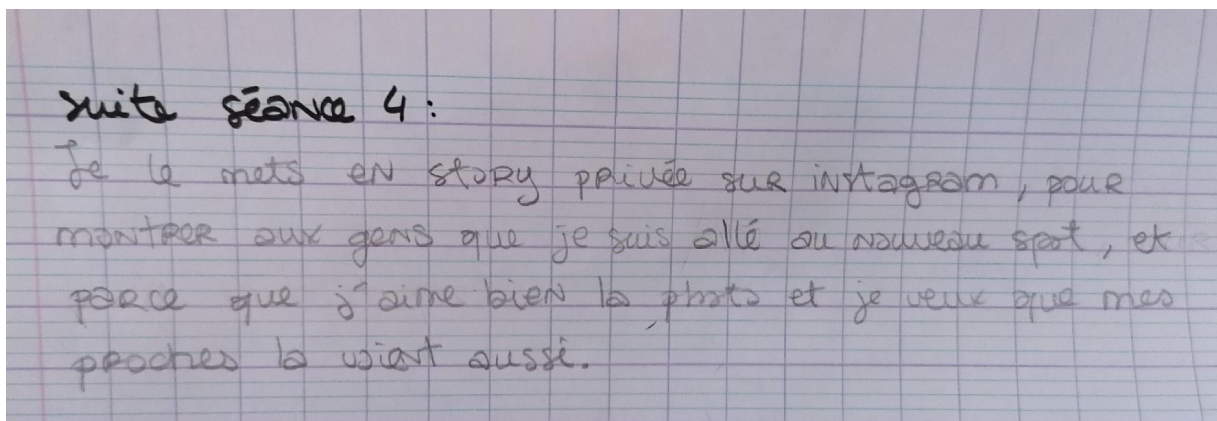 suite séance 4 :
Je le mets en story privée sur instagram, pour
montrer aux gens que je suis allé au nouveau spot, et
parce que j'aime bien la photo et je veux que mes
proches la voient aussi.